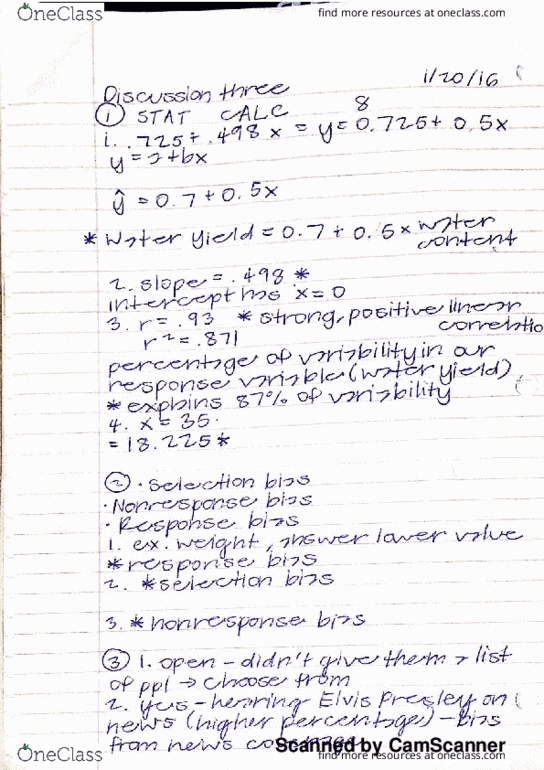 OneClass
find more resources at oneclass.com
1/20/16
Discussion three
① STAT CALC 8
i. .725+ .498x = y= 0.725+ 0.5x
y = a+bx
ŷ = 0.7+0.5x
* Water Yield = 0.7+ 0.5 x water
content
2. slope = .498 *
intercept has x=0
3. r = .93 * strong, positive linear
correlatio
r² = .871
percentage of variability in our
response variable (water yield)
* explains 87% of variability
4. x = 35.
= 18.225*
② · Selection bias
· Nonresponse bias
· Response bias
1. ex. weight, answer lower value
* response bias
2. * selection bias
3. * nonresponse bias
③ 1. open - didn't give them a list
of ppl → choose from
2. yes - hearing Elvis Presley on
news (higher percentage) - bias
from news
Scanned by CamScanner
OneClass
find more resources at oneclass.com